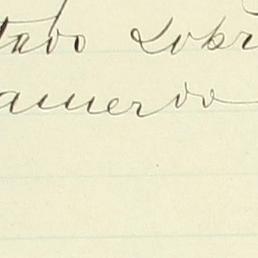 tavo Lobr
amerdo